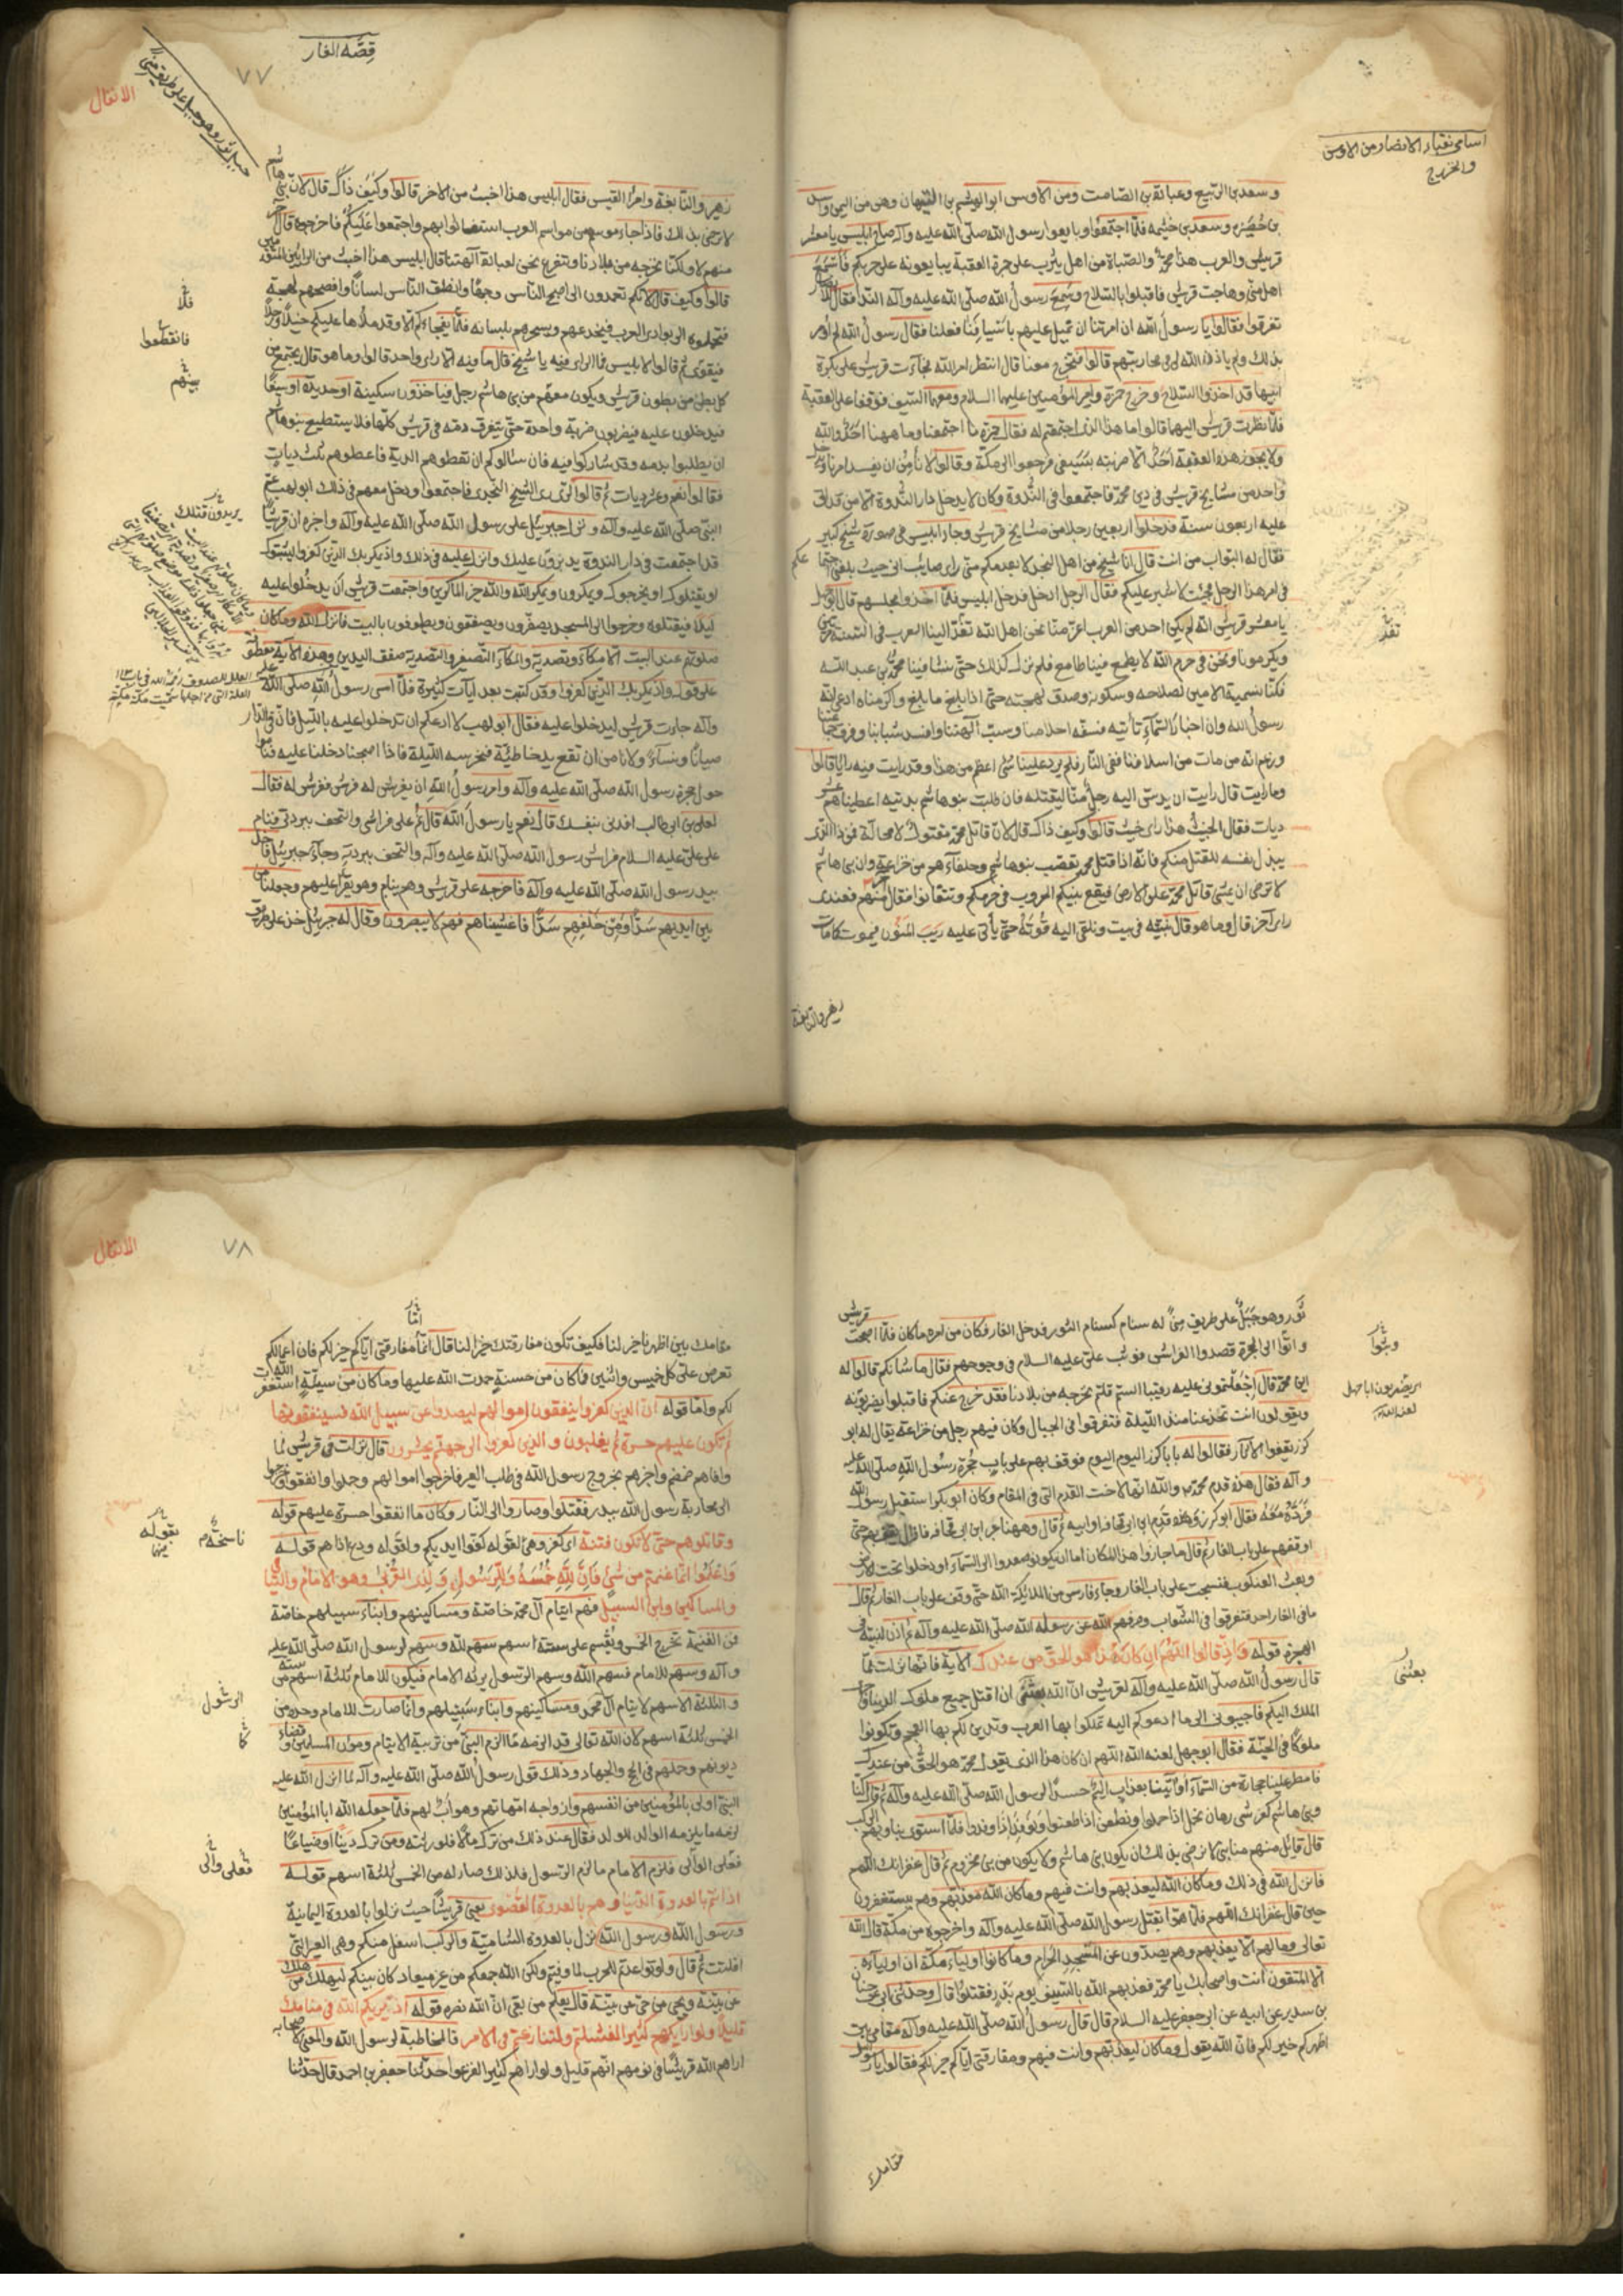 اسامى نقباء الانصار من الاوس
والخزرج
وسعد بن الربيع وعبادة بن الصامت ومن الاوس ابو الهيثم بن التيهان وهو من اليمن واسيد
بن حضير وسعد بن خيثمه فلما اجتمعوا وبايعوا رسول الله صلى الله عليه وآله صاح ابليس يا معشر
قريش والعرب هذا محمد والصباة من اهل يثرب على جمرة العقبة يبايعونه على حربكم فاسمع
اهل منى وهاجت قريش فاقبلوا بالسلاح وسمع رسول الله صلى الله عليه وآله النداء فقال للانصار
تفرقوا فقالوا يا رسول الله ان امرتنا ان نميل عليهم باسيافنا فعلنا فقال رسول الله لم اومر
بذلك ولم ياذن الله لى فى محاربتهم قالوا فتخرج معنا قال انتظر امر الله فجآءت قريش على بكرة
ابيها قد اخذوا السلاح وخرج حمزة وامير المؤمنين عليهما السلام ومعهما السيف فوقفا على العقبة
فلما نظرت قريش اليهما قالوا ما هذا الذى اجتمعتم له فقال حمزة ما اجتمعنا وما ههنا احد والله
ولا يجوز هذه العقبة احد الا ضربته بسيفى فرجعوا الى مكة وقالوا لا نأمن ان يفسد امرنا ويدخل
واحد من مشايخ قريش فى دين محمد فاجتمعوا فى الندوة وكان لا يدخل دار الندوة الا من قد اتى
عليه اربعون سنة فدخلوا اربعين رجلا من مشايخ قريش وجاء ابليس فى صورة شيخ كبير
فقال له البواب من انت قال انا شيخ من اهل النجد لا يعدمكم منى راى صائب انى حيث بلغنى اجتماعكم
فى امر هذا الرجل فجئت لاشير عليكم فقال الرجل ادخل فدخل ابليس فلما اخذوا مجلسهم قال ابو جهل
يا معشر قريش انه لم يكن احد من العرب اعز منا نحن اهل الله تفد الينا العرب فى السنة مرتين
ويكرموننا ونحن فى حرم الله لا يطمع فينا طامع فلم نزل كذلك حتى نشا فينا محمد بن عبد الله
فكنا نسميه الامين لصلاحه وسكونه وصدق لهجته حتى اذا بلغ ما بلغ واكرمناه ادعى انه
رسول الله وان اخبار السماء تأتيه فسفه احلامنا وسب آلهتنا وافسد شبابنا وفرق جماعتنا
وزعم انه من مات من اسلافنا ففى النار فلم يرد علينا شئ اعظم من هذا وقد رايت فيه رايا قالوا
وما رايت قال رايت ان يدس اليه رجل منا ليقتله فان طلبت بنو هاشم بديته اعطيناهم عشر
ديات فقال الخبيث هذا راى خبيث قالوا وكيف ذاك قال لان قاتل محمد مقتول لا محالة فمن ذا الذى
يبذل نفسه للقتل منكم فانه اذا قتل محمد تعصب بنو هاشم وحلفآءهم من خزاعة وان بنى هاشم
لا ترضى ان يمشى قاتل محمد على الارض فيقع بينكم الحروب فى حرمكم وتتفانوا فقال آخر منهم فعندى
راى آخر قال وما هو قال نثبته فى بيت ونلقى اليه قوته حتى يأتى عليه ريب المنون فيموت كما مات
زهير والنابغة
قصه الغار
٧٧
الانفال
جبل ثور وهو جبل على طريق منى
زهير والنابغة وامرؤ القيس فقال ابليس هذا اخبث من الاخر قالوا وكيف ذاك قال لان بنى هاشم
لا ترضى بذلك فاذا جاء موسم من مواسم العرب استغاثوا بهم واجتمعوا عليكم فاخرجوه قال آخر
منهم لا ولكنا نخرجه من بلادنا ونتفرغ نحن لعبادة آلهتنا قال ابليس هذا اخبث من الرايين المتقدمين
قالوا وكيف قال لانكم تعمدون الى اصبح الناس وجها وانطق الناس لسانا وافصحهم لهجة
فتحملوه الى بوادى العرب فيخدعهم ويسحرهم بلسانه فلا يفجاءكم الا وقد ملأها عليكم خيلا ورجلا
فبقوى ثم قالوا لابليس فما الراى فيه يا شيخ قال ما فيه الا راى واحد قالوا وما هو قال يجتمع من
كل بطن من بطون قريش ويكون معهم من بنى هاشم رجل فياخذون سكينة او حديدة او سيفا
فيدخلون عليه فيضربون ضربة واحدة حتى يتفرق دمه فى قريش كلها فلا يستطيع بنو هاشم
ان يطلبوا بدمه وقد شاركوا فيه فان سألوكم ان تعطوهم الدية فاعطوهم ثلث ديات
فقالوا نعم وعشر ديات ثم قالوا الراى راى الشيخ النجدى فاجتمعوا ودخل معهم فى ذلك ابو لهب عم
النبى صلى الله عليه وآله ونزل جبرئيل على رسول الله صلى الله عليه وآله واخبره ان قريشا
قد اجتمعت فى دار الندوة يدبرون عليك وانزل عليه فى ذلك واذ يمكر بك الذين كفروا ليثبتوك
او يقتلوك او يخرجوك ويمكرون ويمكر الله والله خير الماكرين واجتمعت قريش ان يدخلوا عليه
ليلا فيقتلوه وخرجوا الى المسجد يصفرون ويصفقون ويطوفون بالبيت فانزل الله وما كان
صلوتهم عند البيت الا مكاء وتصدية والمكآء التصفير والتصدية صفق اليدين وهذه الآية معطوفة
على قوله واذ يمكر بك الذين كفروا وقد كتبت بعد آيات كثيرة فلما امسى رسول الله صلى الله عليه
وآله جاءت قريش ليدخلوا عليه فقال ابو لهب لا ادعكم ان تدخلوا عليه بالليل فان فى الدار
صبيانا ونساءً ولا نامن ان تقع يد خاطئة فنحرسه الليلة فاذا اصبحنا دخلنا عليه فناموا
حول حجرة رسول الله صلى الله عليه وآله وامر رسول الله ان يفرش له فرش ففرش له فقال
لعلى بن ابى طالب افدنى بنفسك قال نعم يا رسول الله قال نم على فراشى والتحف ببردتى فنام
على عليه السلام فراش رسول الله صلى الله عليه وآله والتحف ببردته وجآء جبرئيل فاخذ
بيد رسول الله صلى الله عليه وآله فاخرجه على قريش وهم ينام وهو يقرأ عليهم وجعلنا من
بين ايديهم سدا ومن خلفهم سدا فاغشيناهم فهم لا يبصرون وقال له جبرئيل خذ على طريق
فلا
فانقطعوا
بينهم
يريدون قتلك
ثور وهو جبل على طريق منى له سنام كسنام الثور فدخل الغار فكان من امره ما كان فلما اصبحت قريش
واتوا الى الحجرة قصدوا الفراش فوثب على عليه السلام فى وجوههم فقال ما شأنكم قالوا له
اين محمد قال اجعلتمونى عليه رقيبا الستم قلتم نخرجه من بلادنا فقد خرج عنكم فاقبلوا يضربونه
ويقولون انت تخدعنا منذ الليلة فتفرقوا فى الجبال وكان فيهم رجل من خزاعة يقال له ابو
كرز يقفوا الآثار فقالوا له يا با كرز اليوم اليوم فوقف بهم على باب حجرة رسول الله صلى الله عليه
وآله فقال هذه قدم محمد والله انها لاخت القدم التى فى المقام وكان ابو بكر استقبل رسول الله
فرده معه فقال ابو كرز وهذه قدم ابن ابى قحافة او ابيه ثم قال وههنا غبر ابن ابى قحافة فما زال يقف بهم حتى
اوقفهم على باب الغار ثم قال ما جازوا هذا المكان اما ان يكونوا صعدوا الى السمآء او دخلوا تحت الارض
وبعث الله العنكبوت فنسجت على باب الغار وجاء فارس من الملائكة حتى وقف على باب الغار ثم قال
ما فى الغار احد فتفرقوا فى الشعاب وصرفهم الله عن رسوله الله صلى الله عليه وآله ثم اذن لنبيه فى
الهجرة قوله واذ قالوا اللهم ان كان هذا هو الحق من عندك الآية فانها نزلت لما
قال رسول الله صلى الله عليه وآله لقريش ان الله بعثنى ان اقتل جميع ملوك الدنيا واجر
الملك اليكم فاجيبونى الى ما ادعوكم اليه تملكوا بها العرب وتدين لكم بها العجم وتكونوا
ملوكا فى الجنة فقال ابو جهل لعنه الله اللهم ان كان هذا الذى يقول محمد هو الحق من عندك
فامطر علينا حجارة من السماء او ائتنا بعذاب اليم حسدا لرسول الله صلى الله عليه وآله ثم قال كنا
وبنى هاشم كفرسى رهان نحمل اذا حملوا ونطعن اذا طعنوا ونوفد اذا وفدوا فلما استوى بنا وبهم الركب
قال قائل منهم منا نبى لا نرضى بذلك ان يكون بنى هاشم ولا يكون من بنى مخزوم ثم قال غفرانك اللهم
فانزل الله فى ذلك وما كان الله ليعذبهم وانت فيهم وما كان الله معذبهم وهم يستغفرون
حين قال غفرانك اللهم فلما هموا بقتل رسول الله صلى الله عليه وآله واخرجوه من مكة قال الله
تعالى وما لهم الا يعذبهم وهم يصدون عن المسجد الحرام وما كانوا اولياءه مكة ان اولياؤه
الا المتقون انت واصحابك يا محمد فعذبهم الله بالسيف يوم بدر فقتلوا قال وحدثنى ابى عن حنان
بن سدير عن ابيه عن ابى جعفر عليه السلام قال قال رسول الله صلى الله عليه وآله مقامى بين
اظهركم خير لكم فان الله يقول وما كان ليعذبهم وانت فيهم ومفارقتى اياكم خير لكم فقالوا يا رسول الله
بعثنى
مقامك
الانفال
٧٨
مقامك بين اظهرنا خير لنا فكيف تكون مفارقتك خيرا لنا قال اما مفارقتى اياكم خير لكم فان اعمالكم
تعرض على كل خميس واثنين فما كان من حسنة حمدت الله عليها وما كان من سيئة استغفرت الله
لكم واما قوله ان الذين كفروا ينفقون اموالهم ليصدوا عن سبيل الله فسينفقونها
ثم تكون عليهم حسرة ثم يغلبون والذين كفروا الى جهنم يحشرون قال نزلت فى قريش لما
وافاهم ضمضم واخبرهم بخروج رسول الله فى طلب العير فاخرجوا اموالهم وحملوا وانفقوا وخرجوا
الى محاربة رسول الله ببدر فقتلوا وصاروا الى النار وكان ما انفقوا حسرة عليهم قوله
وقاتلوهم حتى لا تكون فتنة اى كفر وهى لقوله كفوا ايديكم ولقوله ودع اذاهم قوله
واعلموا انما غنمتم من شئ فان لله خمسه وللرسول ولذى القربى وهو الامام واليتامى
والمساكين وابن السبيل فهم ايتام آل محمد خاصة ومساكينهم وابناء سبيلهم خاصة
فمن الغنيمة يخرج الخمس ويقسم على ستة اسهم سهم لله وسهم لرسول الله صلى الله عليه
وآله وسهم للامام فسهم الله وسهم الرسول يرثه الامام فيكون للامام ثلثة اسهم من ستة
والثلثة الاسهم لايتام آل محمد ومساكينهم وابناء سبيلهم وانما صارت للامام وحده من
الخمس ثلثة اسهم لان الله تعالى قد الزمه ما الزم النبى من تربية الايتام ومؤن المسلمين وقضاء
ديونهم وحملهم فى الحج والجهاد وذلك قول رسول الله صلى الله عليه وآله لما انزل الله عليه
النبى اولى بالمؤمنين من انفسهم وازواجه امهاتهم وهو اب لهم فلما جعله الله ابا المؤمنين
لزمه ما يلزمه الوالد للولد فقال عند ذلك من ترك مالا فلورثته ومن ترك دينا او ضياعا
فعلى الوالى فلزم الامام ما لزم الرسول فلذلك صار له من الخمس ثلثة اسهم قوله
اذ انتم بالعدوة الدنيا وهم بالعدوة القصوى يعنى قريشا حيث نزلوا بالعدوة اليمانية
ورسول الله ورسول الله نزل بالعدوة الشامية والركب اسفل منكم وهى العير التى
افلتت ثم قال ولو تواعدتم للحرب لما وفيتم ولكن الله جمعكم من غير ميعاد كان بينكم ليهلك من هلك
عن بينة ويحيى من حى عن بينة قال يعلم من بقى ان الله نصره قوله اذ يريكهم الله فى منامك
قليلا ولو اراكهم كثيرا لفشلتم ولتنازعتم فى الامر فالمخاطبة لرسول الله والمعنى لاصحابه
اراهم الله قريشا فى نومهم انهم قليل ولو اراهم كثيرا لفزعوا حدثنا جعفر بن احمد قال حدثنا
ناسخة
بقوله
الرسول
فعلى والى